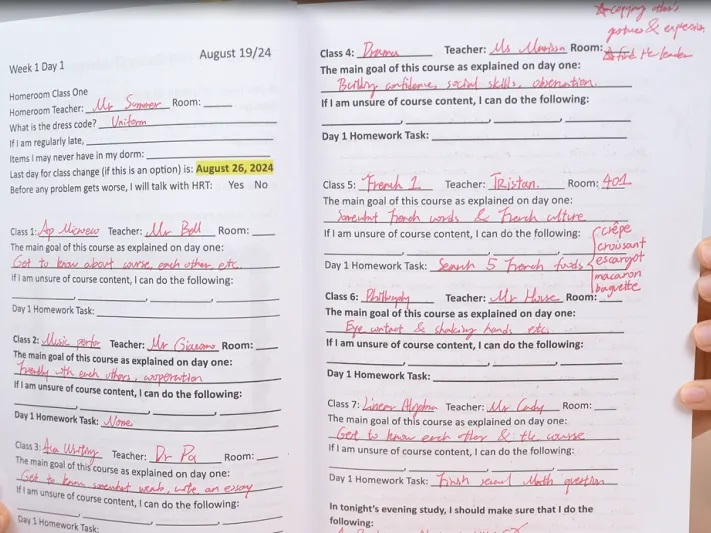 Week 1 Day 1
August 19/24
Homeroom Class One
Homeroom Teacher: Mr Summer Room:
What is the dress code? Uniform
If I am regularly late,
Items I may never have in my dorm:
Last day for class change (if this is an option) is: August 26, 2024
Before any problem gets worse, I will talk with HRT: Yes No
Class 1: Ap Mircew Teacher: Mr Bell Room:
The main goal of this course as explained on day one:
Get to know about course, each other etc.
If I am unsure of course content, I can do the following:
Day 1 Homework Task:
Class 2: Music Teacher: Mr Giacomo Room:
The main goal of this course as explained on day one:
with each others, cooperation
If I am unsure of course content, I can do the following:
Day 1 Homework Task: None
Class 3: Writing Teacher: Dr Pa Room:
The main goal of this course as explained on day one:
Get to know somewhat words, write an essay
If I am unsure of course content, I can do the following:
Day 1 Homework Task:
☆copying other's
gestures & expression
☆find the leader
Class 4: Drama Teacher: Ms Room:
The main goal of this course as explained on day one:
Building confidence, social skills, observation.
If I am unsure of course content, I can do the following:
Day 1 Homework Task:
Class 5: French 1 Teacher: TRistan. Room: 401
The main goal of this course as explained on day one:
Somewhat French words & French culture
If I am unsure of course content, I can do the following:
Day 1 Homework Task: Search 5 French foods
crêpe
croissant
escargot
macaron
baguette
Class 6: Philosophy Teacher: Mr House Room:
The main goal of this course as explained on day one:
Eye contact & shaking hands etc.
If I am unsure of course content, I can do the following:
Day 1 Homework Task:
Class 7: Linear Algebra Teacher: Mr Cady Room:
The main goal of this course as explained on day one:
Get to know each other & the course
If I am unsure of course content, I can do the following:
Day 1 Homework Task: Finish several Math question
In tonight's evening study, I should make sure that I do the
following: